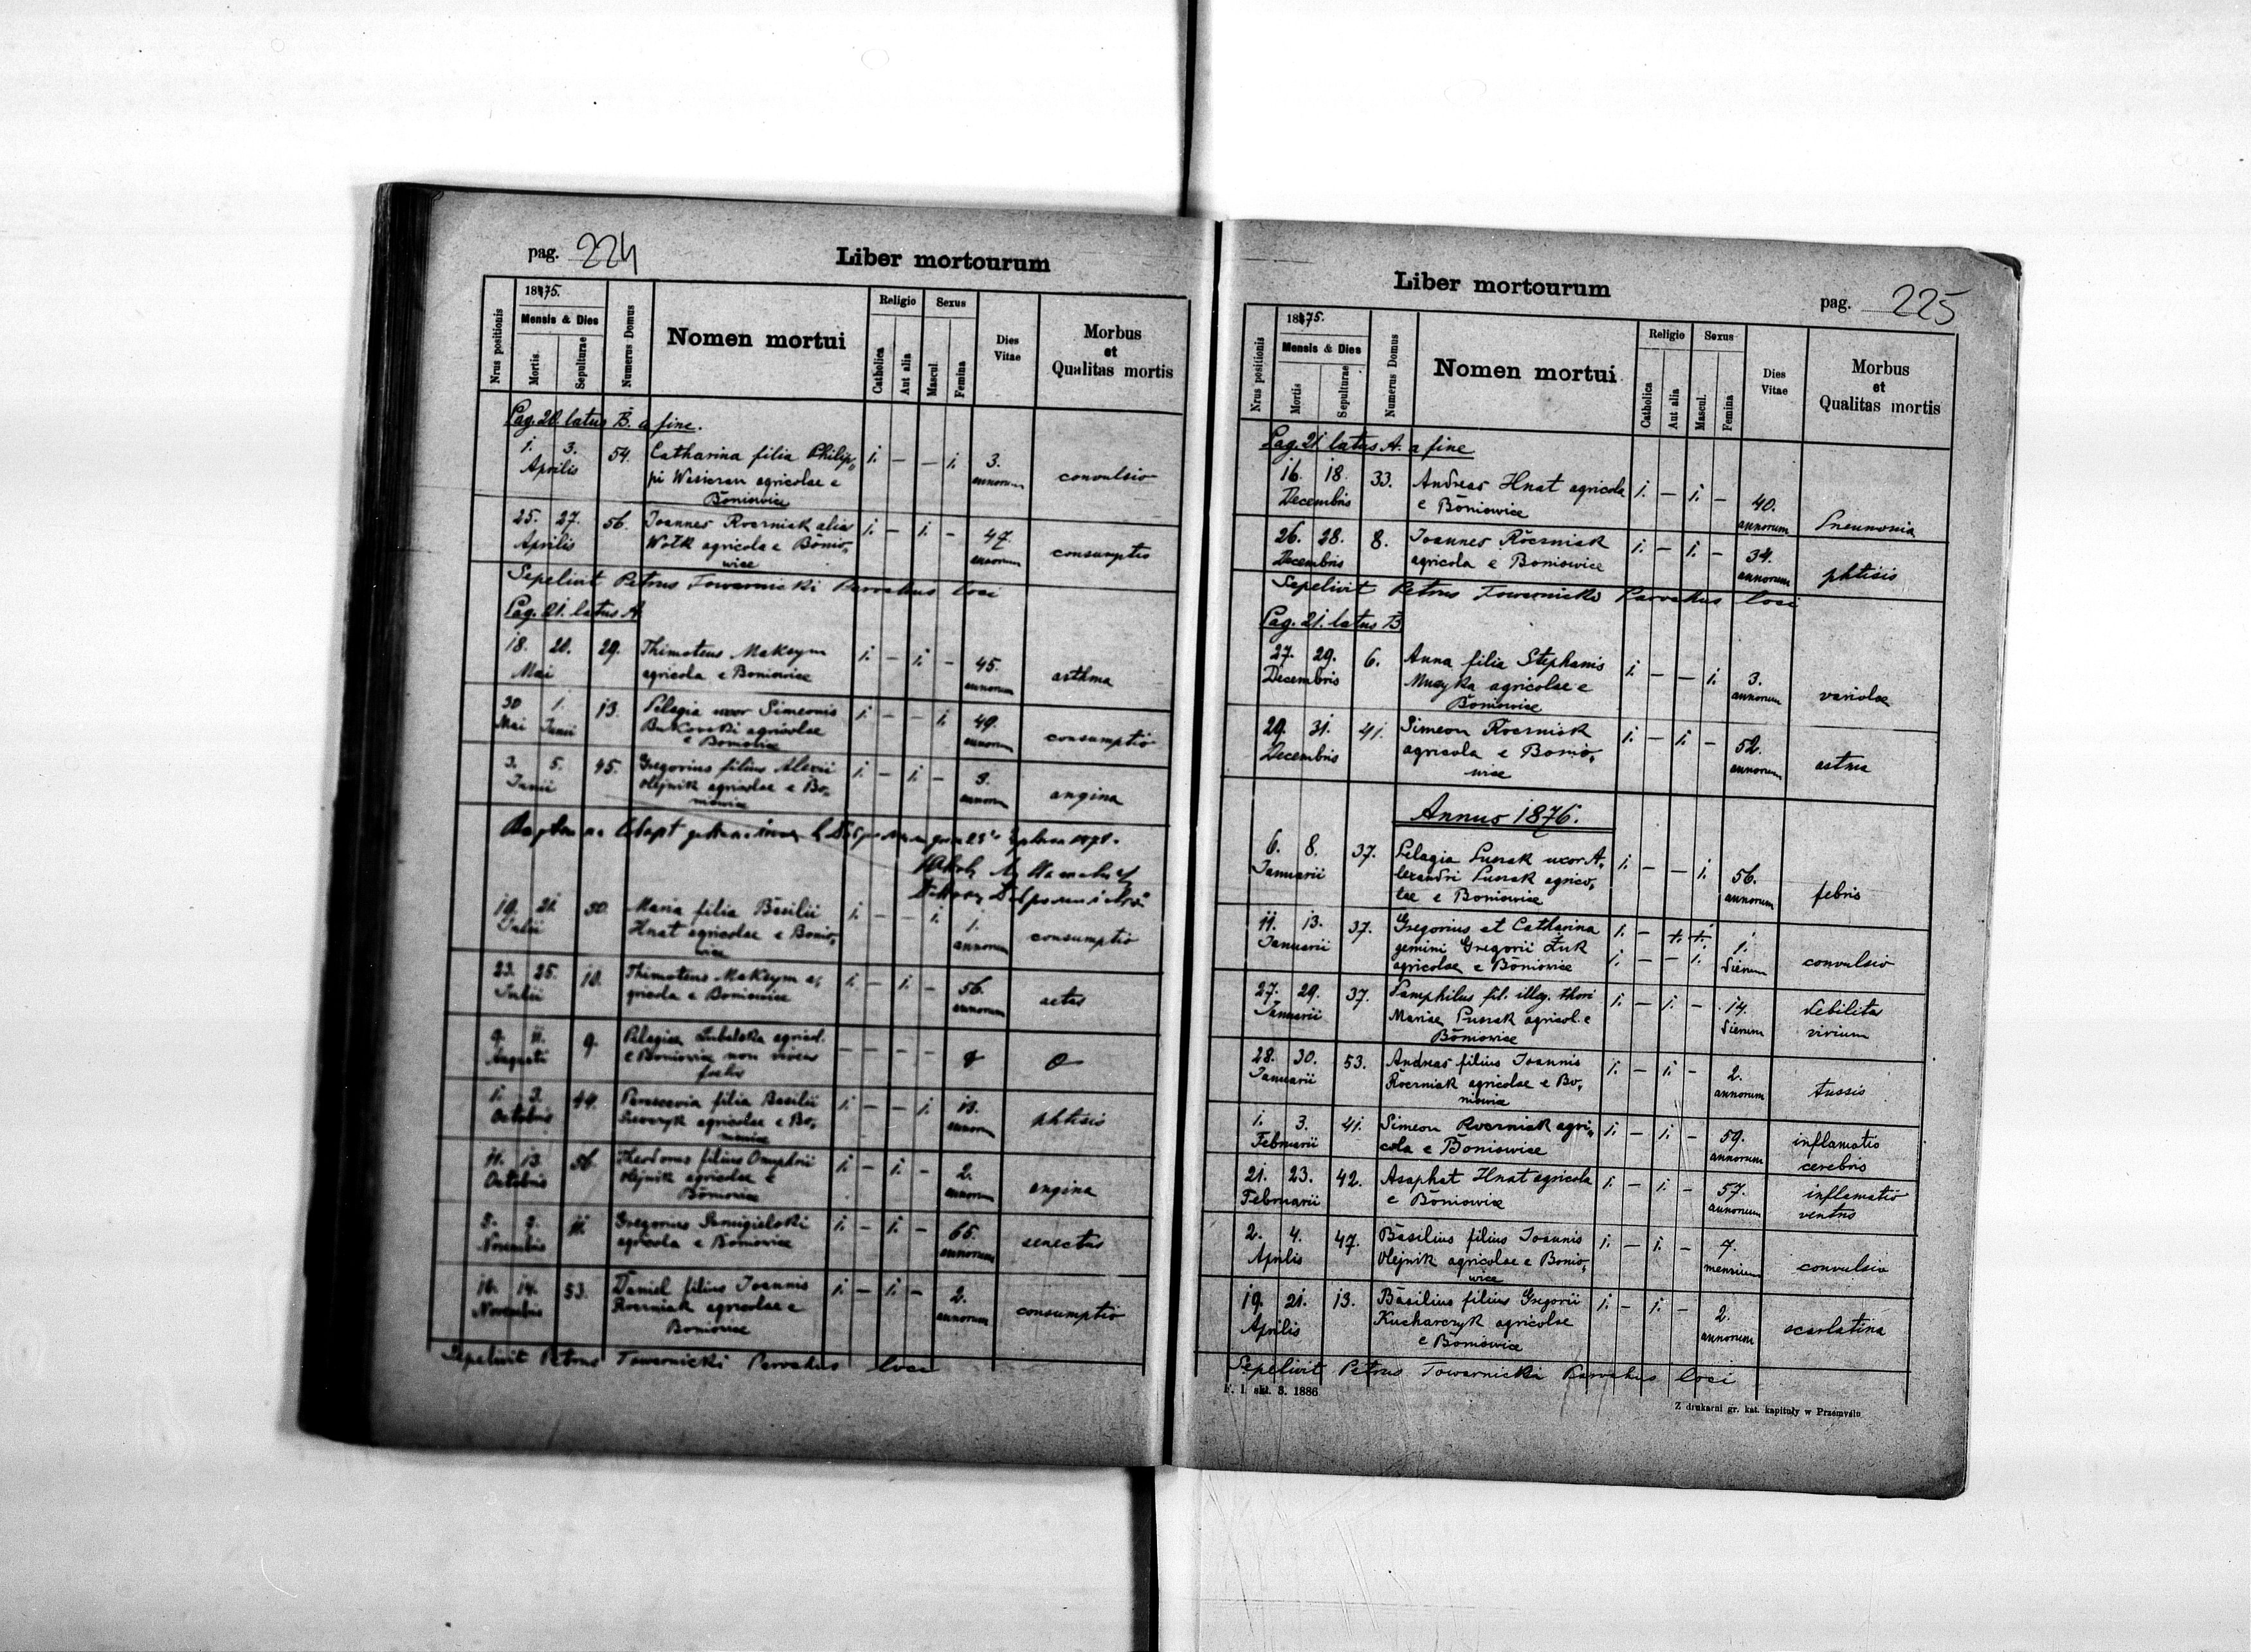 pag. 224
Liber mortourum
1875.
Nrus positionis
Mensis & Dies
Mortis
Sepulturae
Numerus Domus
Nomen mortui
Religio
Catholica
Aut alia
Sexus
Mascul.
Femina
Dies Vitae
Morbus
et
Qualitas mortis
Pag. 20. latus B. a fine.
1. 3. 54. Catharina filia Philip„ 1. — — 1. 3.
Aprilis pi agricolae e annorum convulsio
Boniowice
25. 27. 56. Joannes Roczniak alias 1. — 1. — 47.
Aprilis Wołk agricola e Bonio„ annorum consumptio
wice
Sepelivit Petrus Towarnicki Parochus loci
Pag. 21. latus A
18. 20. 29. Thimoteus Maksym 1. — 1. — 45.
Mai agricola e Boniowice annorum asthma
30 1. 13. Pelagia uxor Simeonis 1. — — 1. 49.
Mai Junii Bukowski agricolae annorum consumptio
e
3. 5. 45. Gregorius filius Alexii 1. — 1. —
Junii Olejnik agricolae e Bo„ annorum angina
niowice
19. 21. 30. Maria filia Basilii 1. — — 1. 1.
Julii Hnat agricolae e Bonio„ annorum consumptio
wice
23. 25. 10. Thimoteus Maksym a„ 1. — 1. — 56.
Julii gricola e Boniowice annorum
9. 11. 9. Pelagiae agricol.
Augusti e Boniowice non vivens — — — —
1. 3. 44. filia Basilii 1. — — 1. 13.
Octobris agricolae e Bo„ annorum phtisis
niowice
11. 13. 56. Theodorus filius Onuphrii 1. — 1. — 2.
Octobris Olejnik agricolae e annorum angina
Boniowice
9. 11. Gregorius 1. — 1. — 65.
Novembris agricola e Boniowice annorum senectus
14. 53. Daniel filius Joannis 1. — 1. — 2.
Novembris Roczniak agricolae e annorum consumptio
Boniowice
Sepelivit Petrus Towarnicki Parochus loci
Liber mortourum
pag. 225
1875.
Nrus positionis
Mensis & Dies
Mortis
Sepulturae
Numerus Domus
Nomen mortui
Religio
Catholica
Aut alia
Sexus
Mascul.
Femina
Dies Vitae
Morbus
et
Qualitas mortis
Pag. 21. latus A. a fine
16. 18. 33. Andreas Hnat agricola 1. — 1. — 40.
Decembris e Boniowice annorum Pneumonia
26. 28. 8. Joannes Roczniak 1. — 1. — 34.
Decembris agricola e Boniowice annorum phtisis
Sepelivit Petrus Towarnicki Parochus loci
Pag. 21. latus B
27. 29. 6. Anna filia Stephanis 1. — — 1. 3.
Decembris Muzyka agricolae e annorum variolae
Boniowice
29. 31. 41. Simeon Roczniak 1. — 1. — 52.
Decembris agricola e Bonio„ annorum astma
wice
Annus 1876.
6. 8. 37. Pelagia Puszak uxor A„ 1. — — 1. 56.
Januarii lexandri Puszak agrico„ annorum febris
lae e Boniowice
11. 13. 37. Gregorius et Catharina 1. — 1. 1.
Januarii gemini Gregorii Żuk dierum convulsio
agricolae e Boniowice 1. — — 1.
27. 29. 37. Pamphilus fil. illeg. thori 1. — 1. — 14. debilitas
Januarii Mariae Puszak agricol. e dierum virium
Boniowice
28. 30. 53. Andreas filius Joannis 1. — 1. — 2.
Januarii Roczniak agricolae e Bo„ annorum tussis
niowice
1. 3. 41. Simeon Roczniak agri„ 1. — 1. — 59. inflamatio
Februarii cola e Boniowice annorum cerebris
21. 23. 42. Asaphat Hnat agricola 1. — 1. — 57. inflamatio
Februarii e Boniowice annorum ventris
2. 4. 47. Basilius filius Joannis 1. — 1. — 7.
Aprilis Olejnik agricolae e Bonio„ mensium convulsio
wice
19. 21. 13. Basilius filius Gregorii 1. — 1. — 2.
Aprilis Kucharczyk agricolae annorum scarlatina
e Boniowice
Sepelivit Petrus Towarnicki Parochus loci
F. 1 skł. 3. 1886
Z drukarni gr. kat. kapituły w Przemyślu